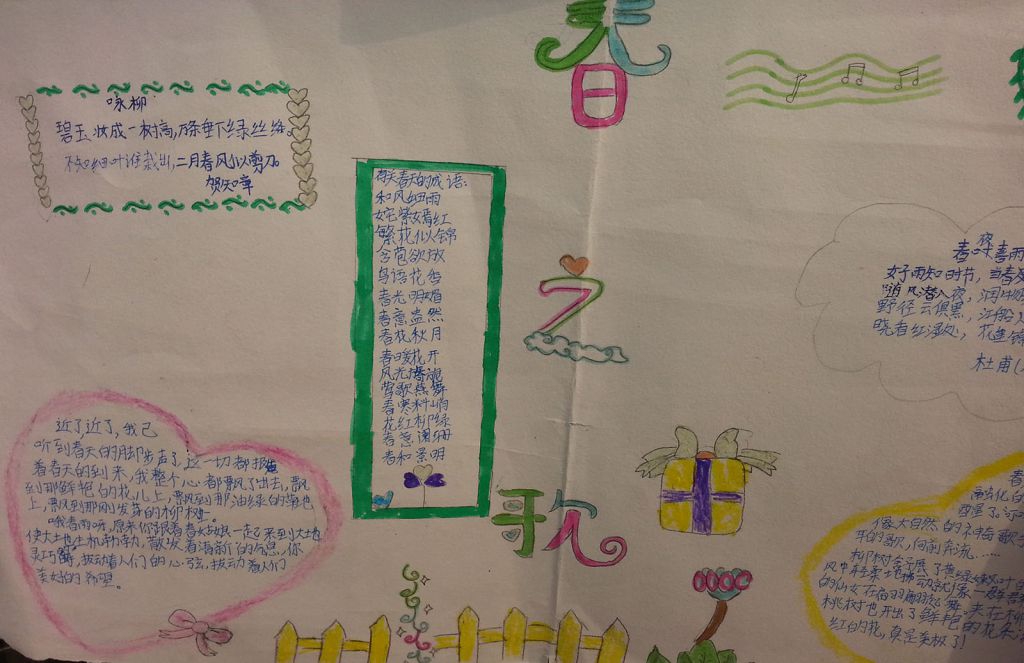 春之歌
咏柳
碧玉妆成一树高,万条垂下绿丝绦。
不知细叶谁裁出,二月春风似剪刀。
贺知章
有关春天的成语:
和风细雨
姹紫嫣红
繁花似锦
含苞欲放
鸟语花香
春光明媚
春意盎然
春花秋月
春暖花开
风光旖旎
莺歌燕舞
春寒料峭
花红柳绿
春意阑珊
春和景明
春夜喜雨
好雨知时节,当春
随风潜入夜,润物
野径云俱黑,江船火
晓看红湿处,花重锦
杜甫
近了近了,我已
听到春天的脚步声了,这一切都报
着春天的到来,我整个心都飘了出去,飘
到那鲜艳的枝儿上,飘到那油绿的草地
上,飘到那刚发芽的柳树。
哦春雨呀,原来你跟着春姑娘一起来到大地
使大地生机勃勃,散发着清新的气息,你
灵巧,拨动着人们的心弦,拨动着人们
美好的希望。
春
融化的
像大自然的神奇歌手
年的歌,向前奔流……
柳树舒展了黄绿嫩叶的
风中轻柔地拂动就像一群
的仙女在
桃树也开出了鲜艳的花朵
红的花,真是美极了!